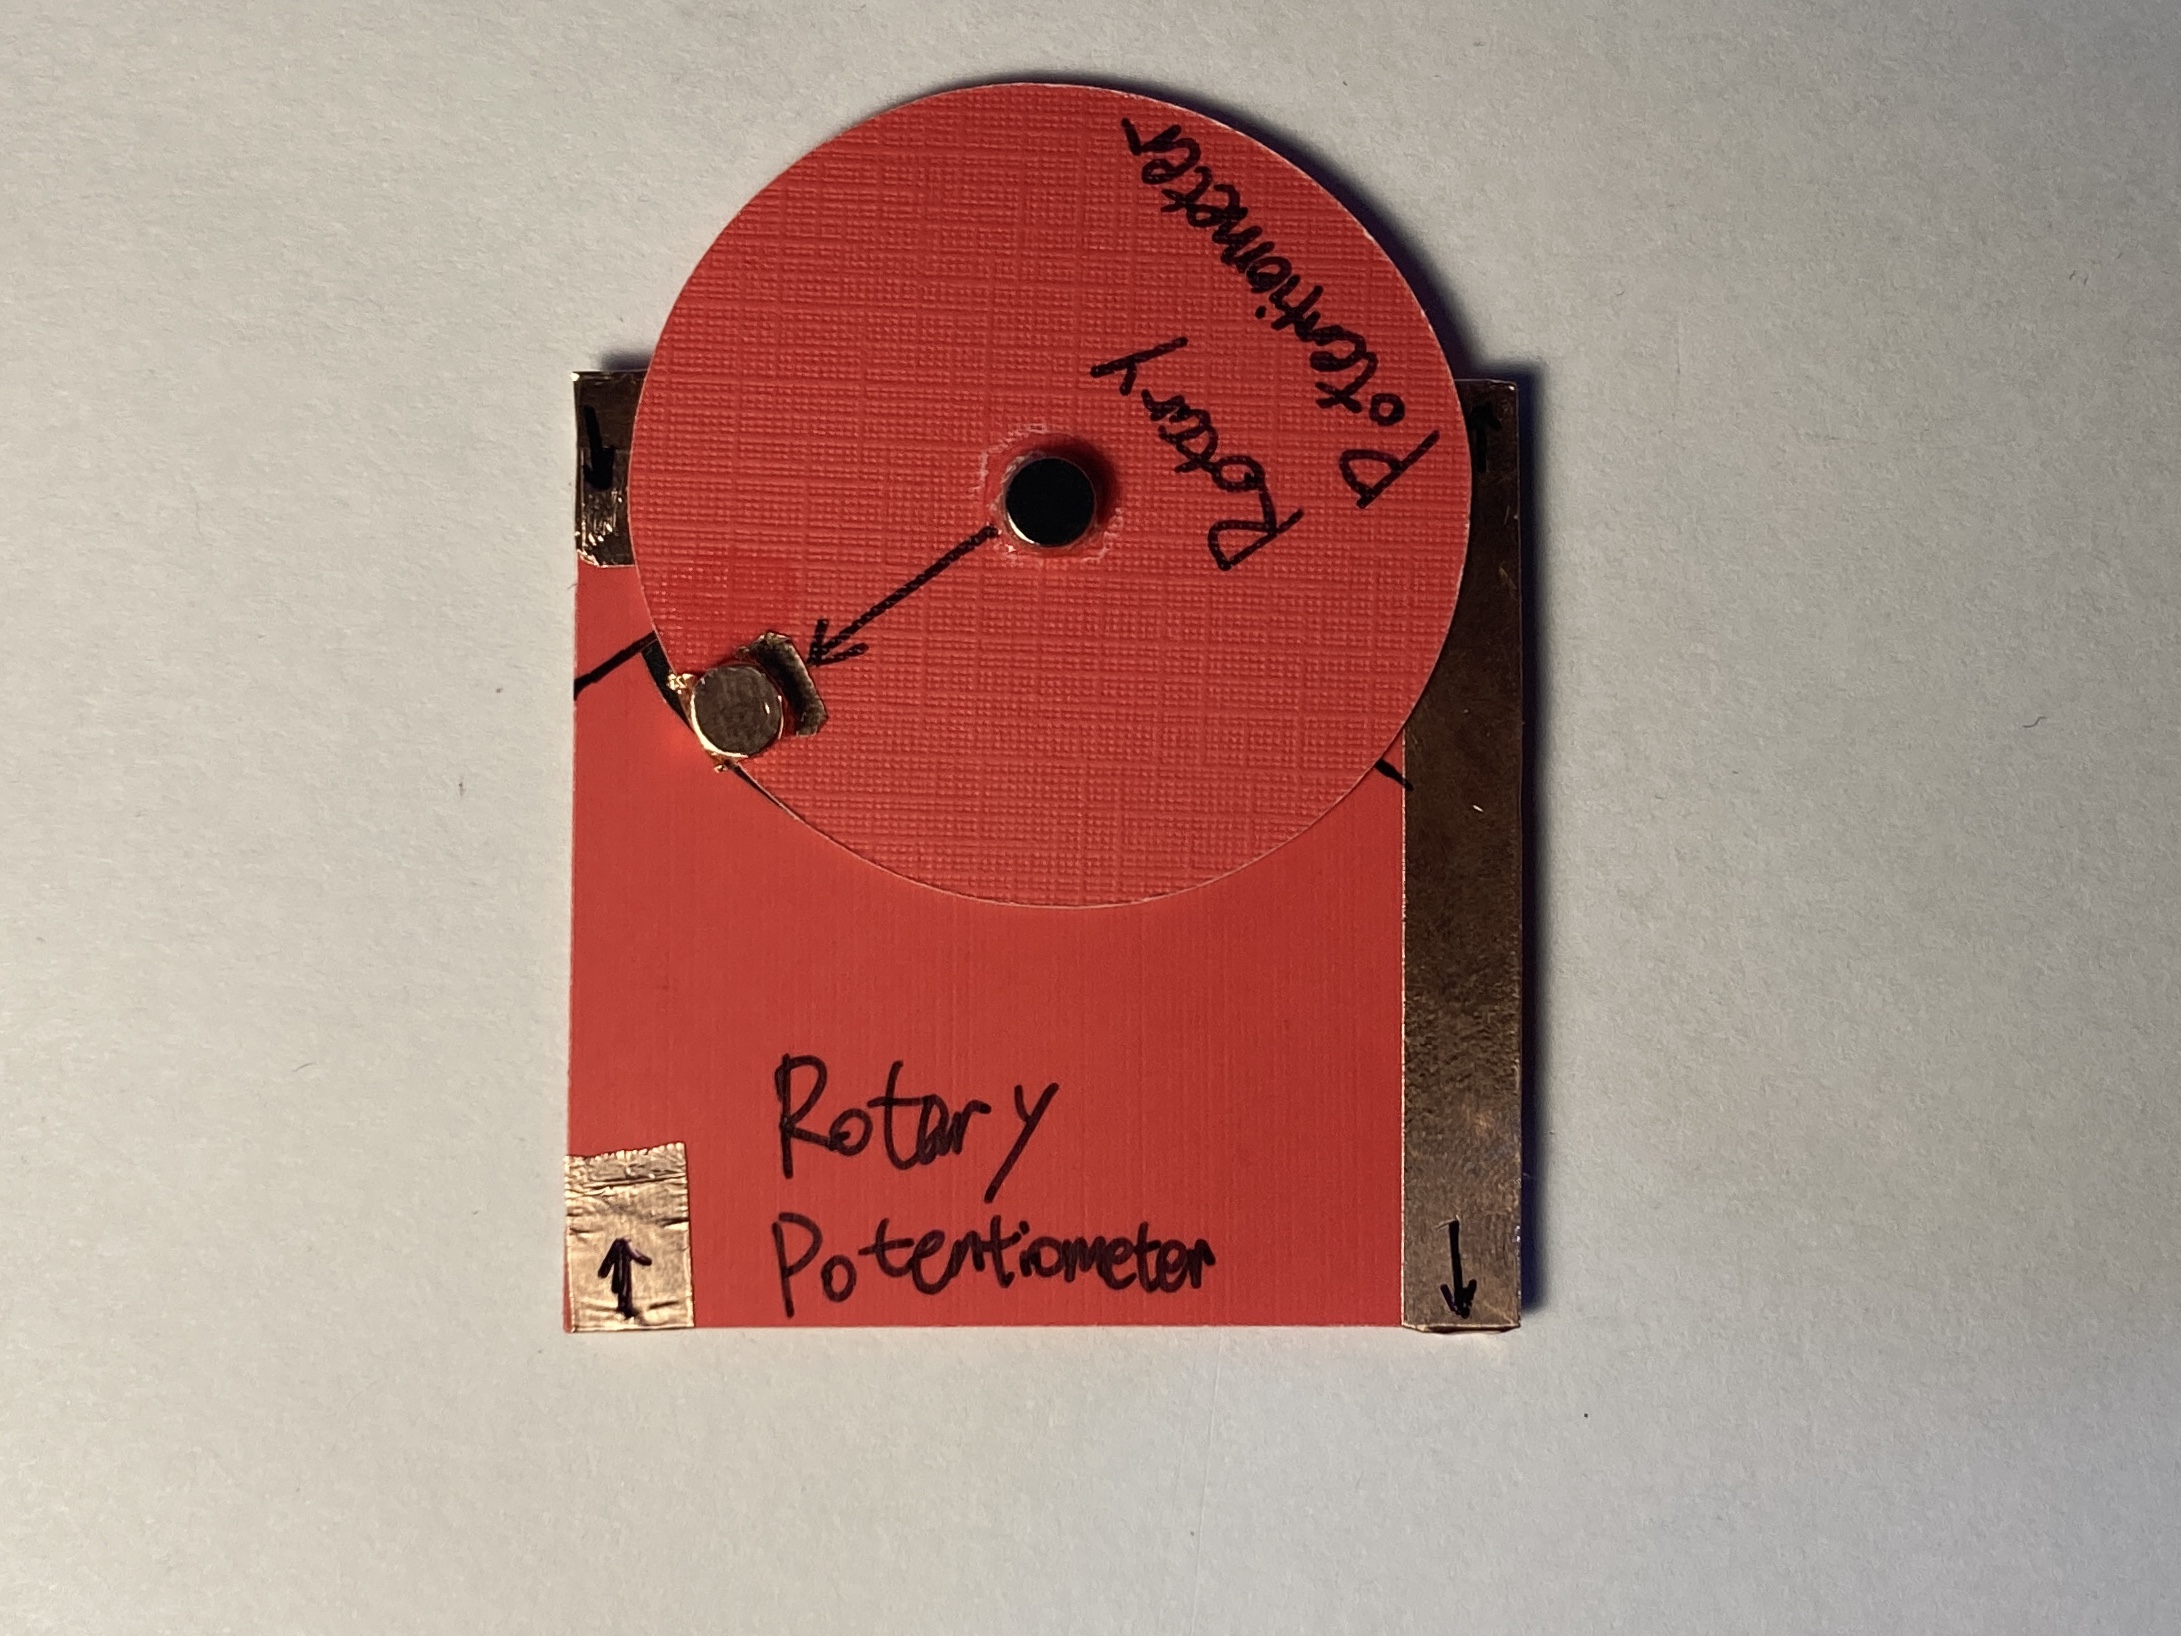 Rotary
Potentiometer
Rotary
Potentiometer